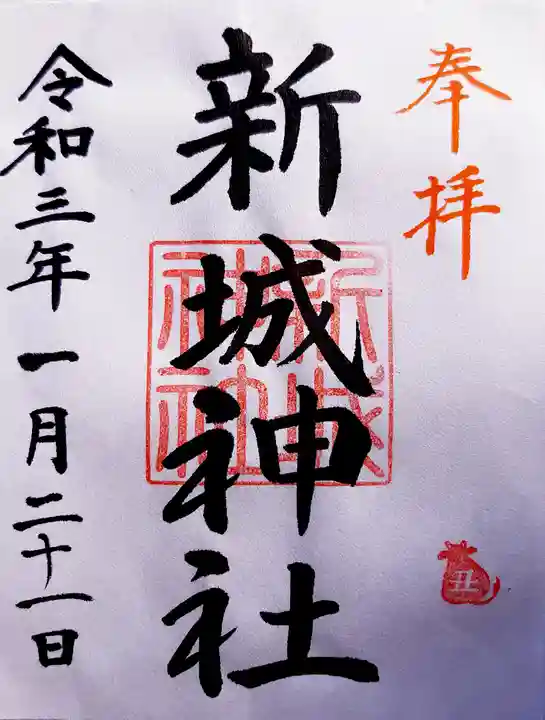 奉拝
新城神社
新城神社
丑
令和三年一月二十一日